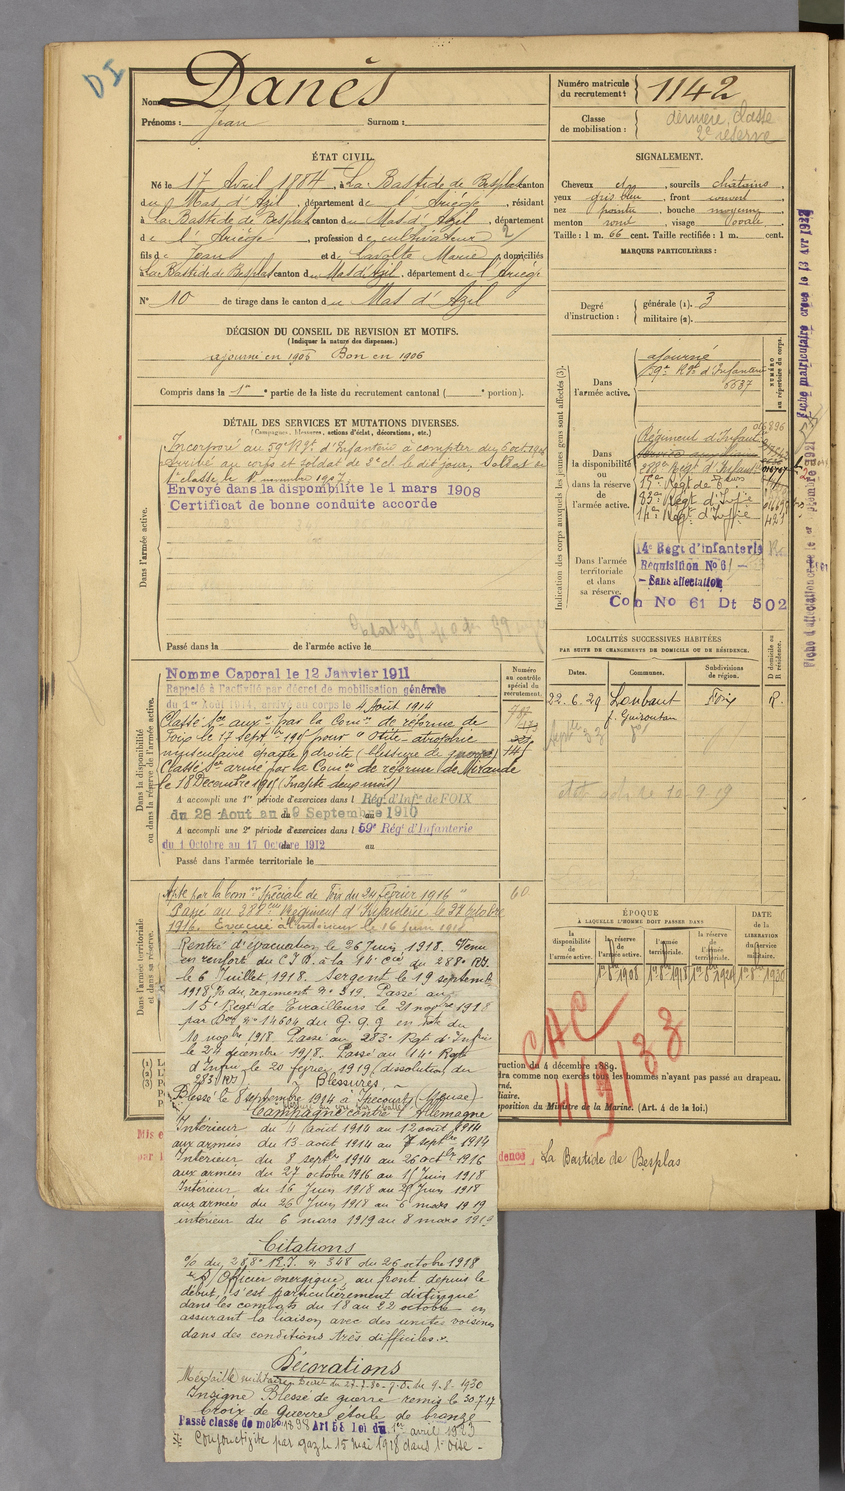 DI
Nom Danès
Prénoms : Jean Surnom :
Numéro matricule du recrutement : 1142
Classe de mobilisation : dernière classe 2e réserve
ÉTAT CIVIL.
Né le 17 Avril 1884, à La Bastide de Besplas canton
du Mas d'Azil, département de l'Ariège, résidant
à La Bastide de Besplas canton du Mas d'Azil, département
de l'Ariège, profession de cultivateur 2/
fils de Jean et de Marie, domiciliés
à La Bastide de Besplas canton du Mas d'Azil, département de l'Ariège
N° 10 de tirage dans le canton du Mas d'Azil
SIGNALEMENT.
Cheveux , sourcils chatains,
yeux gris bleu, front
nez pointu, bouche moyenne
menton rond, visage ovale
Taille : 1 m. 66 cent. Taille rectifiée : 1 m. cent.
MARQUES PARTICULIÈRES :
Degré d'instruction : générale (1). 3
militaire (2).
DÉCISION DU CONSEIL DE REVISION ET MOTIFS.
(Indiquer la nature des dispenses.)
ajourné en 1905 Bon en 1906
Compris dans la 1re partie de la liste du recrutement cantonal ( portion).
DÉTAIL DES SERVICES ET MUTATIONS DIVERSES.
(Campagnes, blessures, actions d'éclat, décorations, etc.)
Dans l'armée active.
Incorporé au 59e Rgt d'Infanterie à compter du 6 oct
Arrivé au corps et soldat de 2e cl. le dit jour. Soldat de
1e classe le novembre 1907.
Envoyé dans la disponibilite le 1 mars 1908
Certificat de bonne conduite accorde
Passé dans la de l'armée active le
Indication des corps auxquels les jeunes gens sont affectés (3).
NUMÉRO au répertoire du corps.
Dans l'armée active.
ajourné
59e Rgt d'Infanterie
6637
Dans la disponibilité ou dans la réserve de l'armée active.
Régiment d'Infant
288e Regt d'Infant
15e Regt de
83e Regt d'Infie
14e Regt d'Infie
Dans l'armée territoriale et dans sa réserve.
14e Regt d'infanterie
Requisition No 61 -
- Sans affectation
Con No 61 Dt 502
Dans la disponibilité ou dans la réserve de l'armée active.
Numéro au contrôle spécial du recrutement.
Nomme Caporal le 12 Janvier 1911
Rappelé à l'activité par décret de mobilisation générale
du 1er Août 1914, arrivé au corps le 4 Août 1914
Classé Sce auxre par la Comon de réforme de
Foix le 17 septbre pour "Otite - atrophie
musculaire épaule droite (blessure de guerre)
Classé Sce armé par la Comon de réforme de Mirande
le 18 Décembre 1915 (Inapte deux mois)
A accompli une 1re période d'exercices dans l Rég. d'Infie de FOIX
du 28 Aout au 19 Septembre 1910
A accompli une 2e période d'exercices dans l 59e Régt d'Infanterie
du 1 Octobre au 17 Octobre 1912
Passé dans l'armée territoriale le
LOCALITÉS SUCCESSIVES HABITÉES
PAR SUITE DE CHANGEMENTS DE DOMICILE OU DE RÉSIDENCE.
Dates. Communes. Subdivisions de région. D domicile ou R résidence.
22.6.29 Loubaut Foix R.
Dans l'armée territoriale et dans sa réserve.
Apte par la Comon Spéciale de Foix du 24 Février 1916 60
Passé au 388eme Régiment d'Infanterie le 22 Octobre
1916. Evacué à l'intérieur le 16 Juin 1918
Rentré d'évacuation le 26 Juin 1918. Venu
en renfort du C.I.D. à la 14e Cie du 288e R.I.
le 6 Juillet 1918. Sergent le 19 septembre
1918, O/ du régiment n° 319. Passé au
15e Regt de Tirailleurs le 21 novbre 1918
par Don n° 14604 du G.Q.G en date du
10 novbre 1918. Passé au 283e Rgt d'Infie
le 24 décembre 1918. Passé au 14e Regt
d'Infie le 20 fevrer 1919 (dissolution du
283 RI)
Blessures
Blessé le 8 septembre 1914 à Ipécourt (Meuse)
Campagne contre l'Allemagne
Intérieur du 4 août 1914 au 12 août 1914
aux armées du 13 août 1914 au 7 septbre 1914
Intérieur du 8 septbre 1914 au 26 octbre 1916
aux armées du 27 octobre 1916 au 15 Juin 1918
Intérieur du 16 Juin 1918 au 25 Juin 1918
aux armées du 26 Juin 1918 au 5 mars 1919
intérieur du 6 mars 1919 au 8 mars 1919
Citations
O/ du 288e R.I. n° 348 du 26 octobre 1918
Officier énergique, au front depuis le
début, s'est particulièrement distingué
dans les combats du 18 au 22 octobre en
assurant la liaison avec des unités voisines
dans des conditions très difficiles".
Décorations
Médaille militaire Décret du 27-7-30 - J.O. du 9.8.1930
Insigne Blessé de guerre remis le 30.7.17
Croix de Guerre étoile de bronze
Passé classe de mob 1898 Art 58 Loi du 1er avril 1923
Conjonctivite par gaz le 15 mai 1918 dans l'Oise -
ÉPOQUE
À LAQUELLE L'HOMME DOIT PASSER DANS
DATE DE LA LIBÉRATION du service militaire.
la disponibilité de l'armée active.
la réserve de l'armée active.
l'armée territoriale.
la réserve de l'armée territoriale.
CAC
H 19133
ruction du 4 décembre 1889.
dra comme non exercés tous les hommes n'ayant pas passé au drapeau.
rné.
iliaire.
position du Ministre de la Marine. (Art. 4 de la loi.)
(1)
(2)
(3)
Mis e
par l
dence La Bastide de Besplas